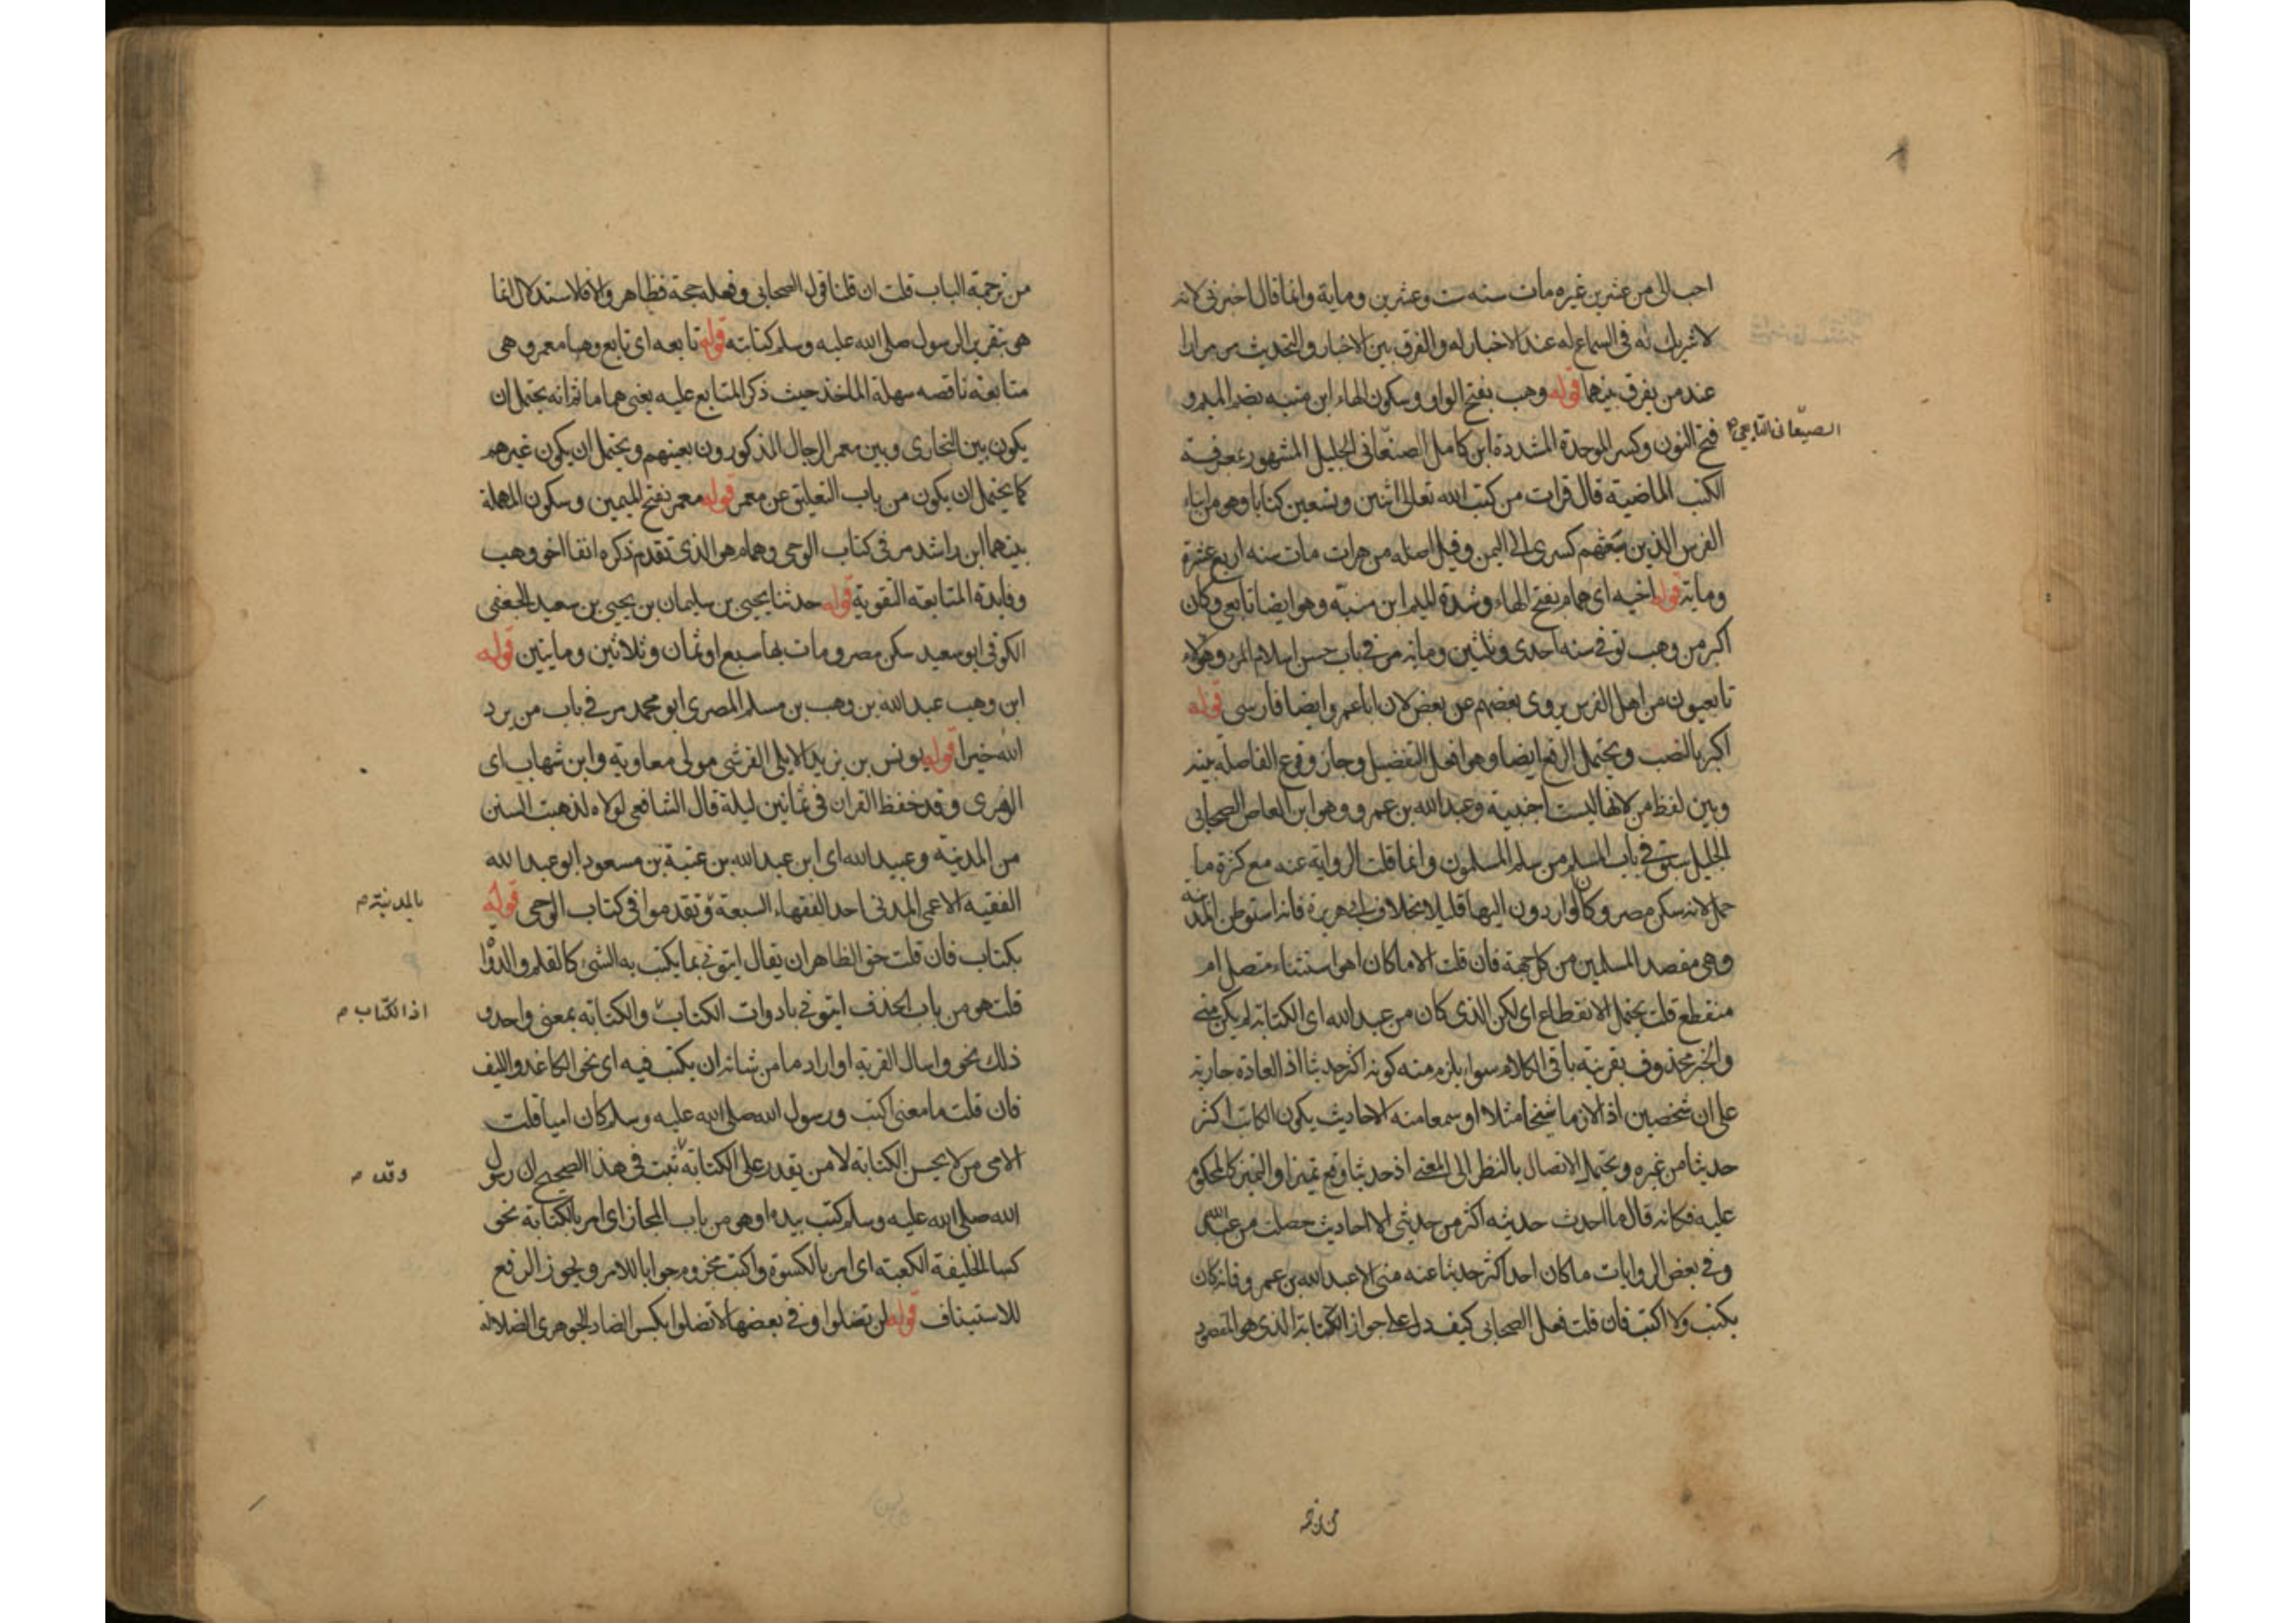 احب الى من عشرين غيره مات سنه ست وعشرين وماية وانما قال اخبرنى لانه
لا شريك له فى السماع له عند الاخبار له والفرق بين الاخبار والتحديث مر مرارا
عند من يفرق بينهما قوله وهب بفتح الواو وسكون الهاء ابن منبه بضم الميم و
فتح النون وكسر الموحدة المشددة ابن كامل الصنعانى الجليل المشهور بمعرفة
الصنعانى التابعى
الكتب الماضية قال قرات من كتب الله تعالى اثنين وتسعين كتابا وهو من ابناء
الفرس الذين بعثهم كسرى الى اليمن وقيل اصله من هرات مات سنه اربع عشرة
وماية قوله اخيه اى همام بفتح الهاء وشدة الميم ابن منبه وهو ايضا تابعى وكان
اكبر من وهب توفى سنه احدى وثلثين وماية مر فى باب حسن اسلام المرء وهؤلاء
تابعيون من اهل الفرس يروى بعضهم عن بعض لان اباعمرو ايضا فارسى قوله
اكثر بالنصب ويحتمل الرفع ايضا وهو افعل التفضيل وجاز وقوع الفاصلة بينه
وبين لفظ من لانها ليست اجنبية وعبد الله بن عمرو وهو ابن العاص الصحابى
الجليل سبق فى باب المسلم من سلم المسلمون وانما قلت الرواية عنه مع كثرة ما
حمل لانه سكن مصر وكان الواردون اليها قليلا بخلاف ابى هريرة فانه استوطن المدينه
وهى مقصد المسلمين من كل جهة فان قلت الا ما كان اهو استثناء متصل ام
منقطع قلت يحتمل الانقطاع اى لكن الذى كان من عبد الله اى الكتابة لم يكن منى
والخبر محذوف بقرينة باقى الكلام سواء يلزم منه كونه اكثر حديثا اذ العادة جارية
على ان شخصين اذا لازما شيخا مثلا او سمعا منه الاحاديث يكون الكاتب اكثر
حديثا من غيره ويحتمل الاتصال بالنظر الى المعنى اذ حديثا وقع تميزا والتميز كالمحكوم
عليه فكانه قال ما احد حديثه اكثر من حديثى الا احاديث حصلت من عبد الله
وفى بعض الروايات ما كان احد اكثر حديثا عنه منى الا عبد الله بن عمرو فانه كان
يكتب ولا اكتب فان قلت فعل الصحابى كيف دل على جواز الكتابة الذى هو المقصود
من ترجمة
من ترجمة الباب قلت ان قلنا قول الصحابى وفعله حجة فظاهر والا فالاستدلال انما
هى بتقرير الرسول صلى الله عليه وسلم كتابته قوله تابعه اى تابع وهبا معمر وهى
متابعة ناقصه سهلة الماخذ حيث ذكر المتابع عليه يعنى هماما ثم انه يحتمل ان
يكون بين البخارى وبين معمر الرجال المذكورون بعينهم ويحتمل ان يكون غيرهم
كما يحتمل ان يكون من باب التعليق عن معمر قوله معمر بفتح الميمين وسكون المهملة
بينهما ابن راشد مر فى كتاب الوحى وهمام هو الذى تقدم ذكره انفا اخو وهب
وفايدة المتابعة التقوية قوله حدثنا يحيى بن سليمان بن يحيى بن سعيد الجعفى
الكوفى ابو سعيد سكن مصر ومات بها سبع او ثمان وثلاثين ومايتين قوله
ابن وهب عبد الله بن وهب بن مسلم المصرى ابو محمد مر فى باب من يرد
الله خيرا قوله يونس بن يزيد الايلى القرشى مولى معاوية وابن شهاب اى
الزهرى وقد حفظ القران فى ثمانين ليلة قال الشافعى لولاه لذهبت السنن
من المدينه وعبيد الله اى ابن عبد الله بن عتبة بن مسعود ابو عبد الله
الفقيه الاعمى المدنى احد الفقهاء السبعة وتقدموا فى كتاب الوحى قوله
بالمدينة
بكتاب فان قلت حق الظاهر ان يقال ايتونى بما يكتب به الشئ كالقلم والدواة
قلت هو من باب الحذف ايتونى بادوات الكتاب والكتابة بمعنى واحد و
اذ الكتاب
ذلك نحو واسال القرية او اراد ما من شانه ان يكتب فيه اى نحو الكاغد والليف
فان قلت ما معنى اكتب ورسول الله صلى الله عليه وسلم كان اميا قلت
الامى من لا يحسن الكتابة لا من يقدر على الكتابة ثبت فى هذا الصحيح ان رسول
وقد
الله صلى الله عليه وسلم كتب بيده او هو من باب المجاز اى امر بالكتابة نحو
كسا الخليفة الكعبة اى امر بالكسوة واكتب مجزوم جوابا للامر ويجوز الرفع
للاستيناف قوله لن تضلوا وفى بعضها لا تضلوا بكسر الضاد الجوهرى الضلالة